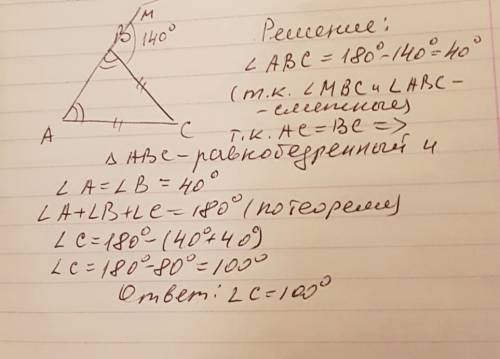 M
B 140°
A
C
Решение:
∠ABC = 180° - 140° = 40°
(т.к. ∠MBC и ∠ABC -
- смежные)
т.к. AC = BC =>
△ ABC - равнобедренный и
∠A = ∠B = 40°
∠A + ∠B + ∠C = 180° (по теореме)
∠C = 180° - (40° + 40°)
∠C = 180° - 80° = 100°
Ответ: ∠C = 100°